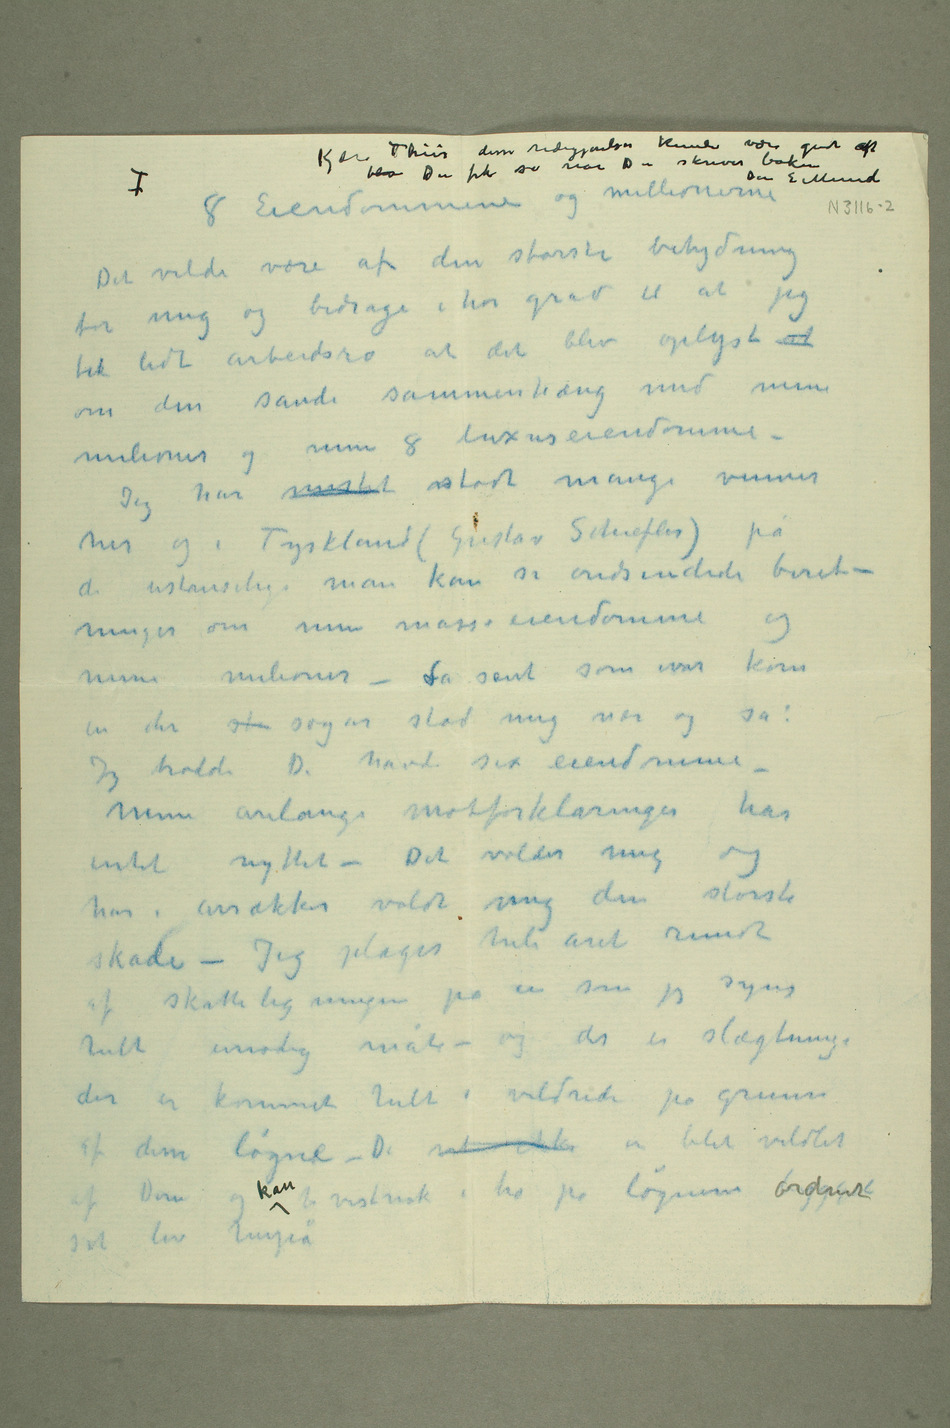 Kjære Thiis denne redegjørelsen kunde være godt at
Du fik se når Du skriver boken
Din E Munch
I
8 Eiendommene og millionerne
N3116-2
Det vilde være af den største betydning
for mig og bidrage i høi grad til at jeg
fik lidt arbeidsro at det blev oplyst at
om den sande sammenhæng med mine
milioner og mine 8 luxuseiendomme –
Jeg har mistet stødt mange venner
her og i Tyskland (Gustav Schiefler) på
de ustanselige man kan si ondsindede beret–
ninger om mine masse eiendomme og
mine milioner – Så sent som ivår kom
en der sogar stod mig nær og sa:
Jeg trodde De havde sex eiendomme –
Mine årlange motforklaringer har
intet nyttet – Det volder mig og
har i årrækker voldt mig den største
skade – Jeg plages hele året rundt
af skatteligningen på en som jeg synes
helt unødig måte – og der er slægtninge
der er kommet helt i vildrede på grunn
af denne løgne – De er blet vildlet
af Dem og kan i tro på løgnene ordnet
sit liv